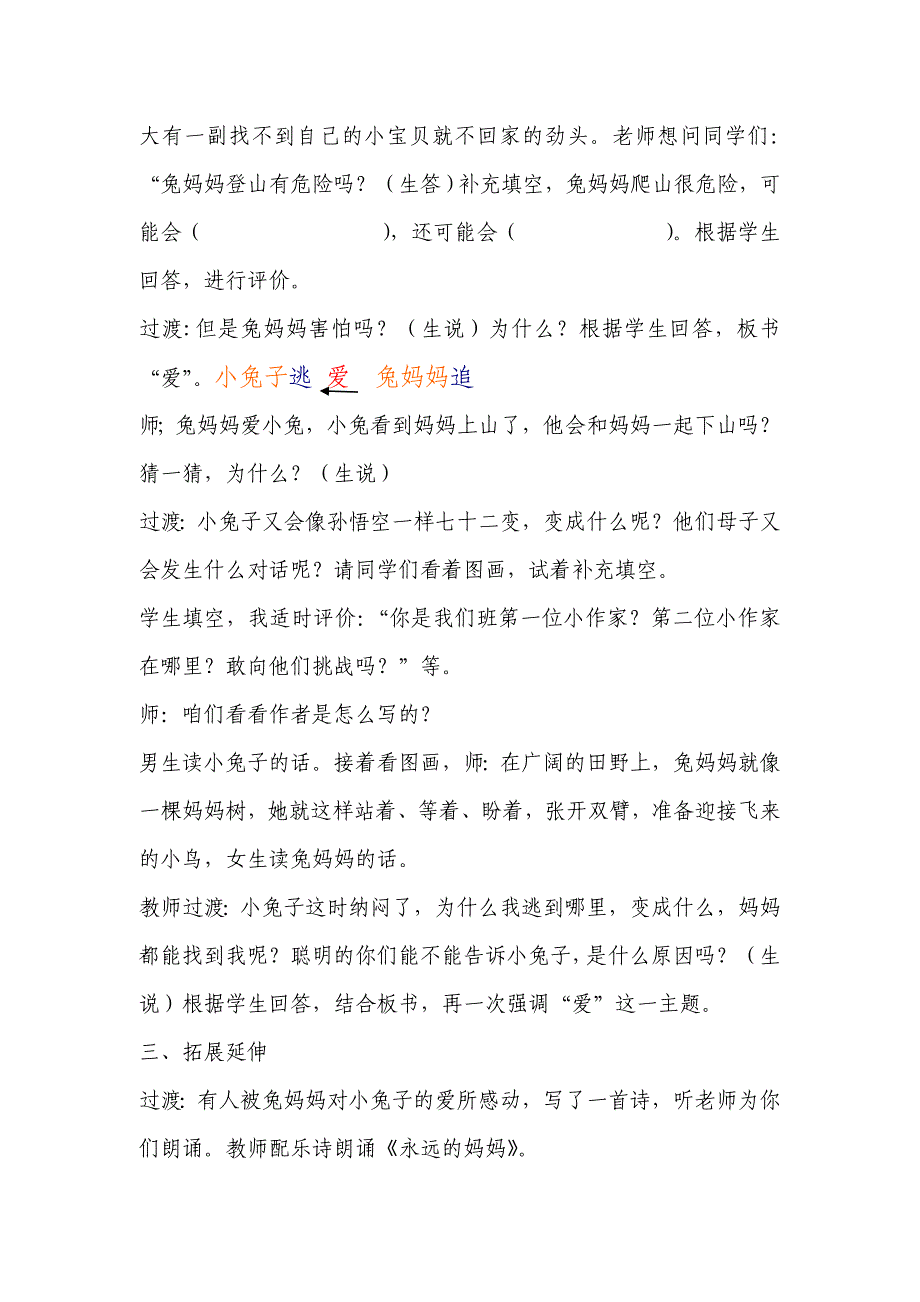 大有一副找不到自己的小宝贝就不回家的劲头。老师想问同学们：
“兔妈妈登山有危险吗？（生答）补充填空，兔妈妈爬山很危险，可
能会（　　　　　　　　），还可能会（　　　　　　　）。根据学生
回答，进行评价。
过渡：但是兔妈妈害怕吗？（生说）为什么？根据学生回答，板书
“爱”。小兔子逃 爱 兔妈妈追
师；兔妈妈爱小兔，小兔看到妈妈上山了，他会和妈妈一起下山吗？
猜一猜，为什么？（生说）
过渡：小兔子又会像孙悟空一样七十二变，变成什么呢？他们母子又
会发生什么对话呢？请同学们看着图画，试着补充填空。
学生填空，我适时评价：“你是我们班第一位小作家？第二位小作家
在哪里？敢向他们挑战吗？”等。
师：咱们看看作者是怎么写的？
男生读小兔子的话。接着看图画，师：在广阔的田野上，兔妈妈就像
一棵妈妈树，她就这样站着、等着、盼着，张开双臂，准备迎接飞来
的小鸟，女生读兔妈妈的话。
教师过渡：小兔子这时纳闷了，为什么我逃到哪里，变成什么，妈妈
都能找到我呢？聪明的你们能不能告诉小兔子，是什么原因吗？（生
说）根据学生回答，结合板书，再一次强调“爱”这一主题。
三、拓展延伸
过渡：有人被兔妈妈对小兔子的爱所感动，写了一首诗，听老师为你
们朗诵。教师配乐诗朗诵《永远的妈妈》。